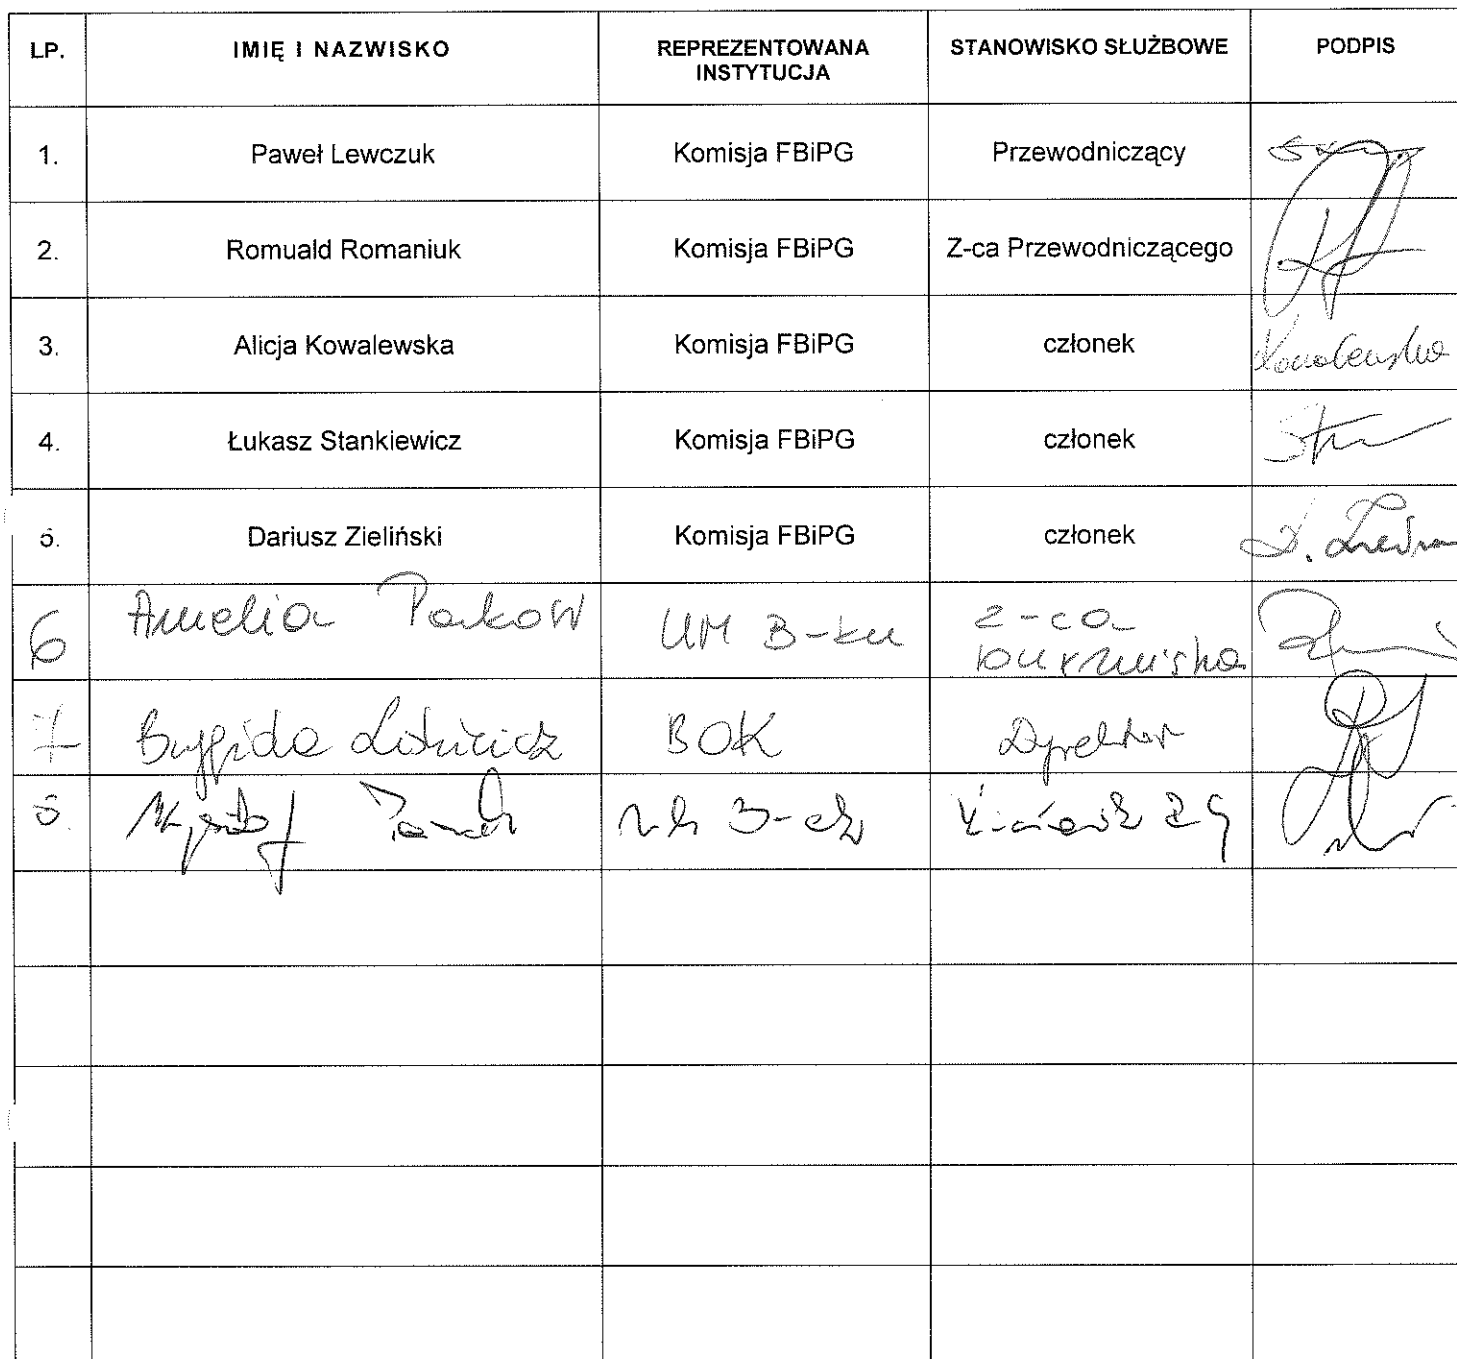 LP. IMIĘ I NAZWISKO REPREZENTOWANA INSTYTUCJA STANOWISKO SŁUŻBOWE PODPIS
1. Paweł Lewczuk Komisja FBiPG Przewodniczący
2. Romuald Romaniuk Komisja FBiPG Z-ca Przewodniczącego
3. Alicja Kowalewska Komisja FBiPG członek Kowalewska
4. Łukasz Stankiewicz Komisja FBiPG członek
5. Dariusz Zieliński Komisja FBiPG członek
6 Amelia UM B-ku z-ca burmistrza
7 Brygida BOK Dyrektor
8.